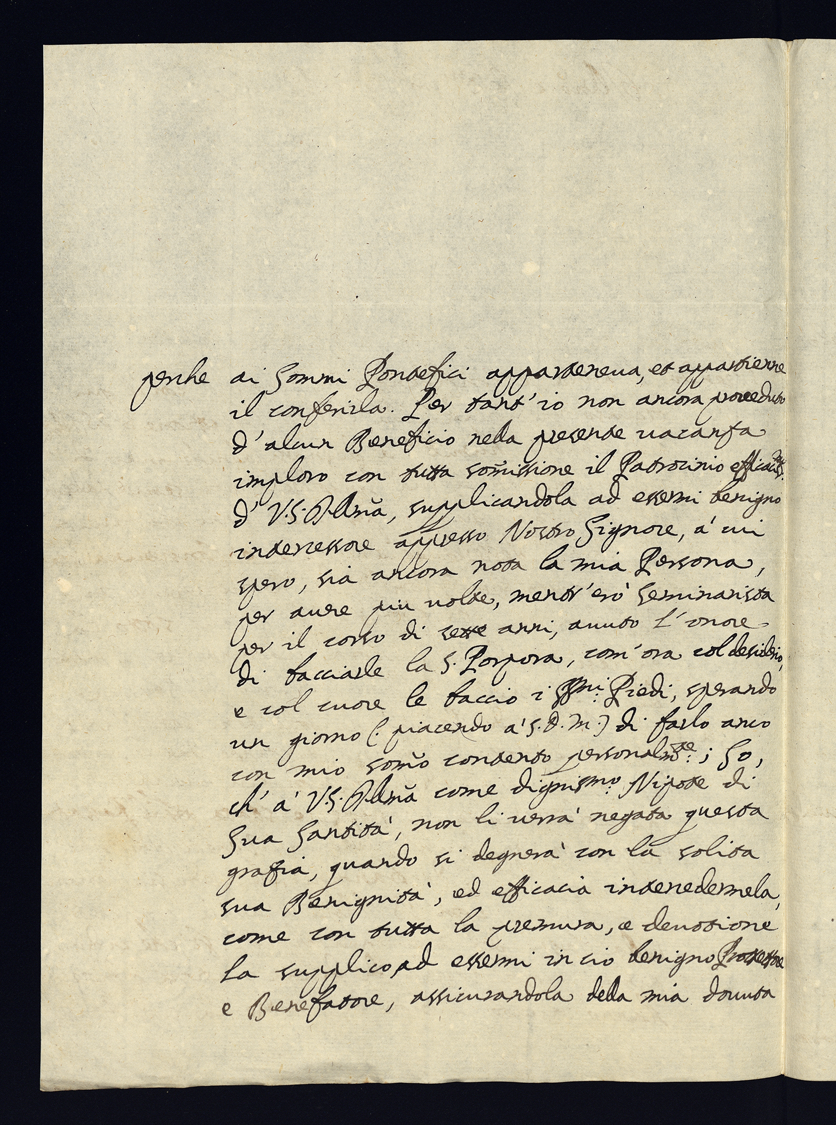 perche ai Sommi Pontefici apparteneua, et appartienne
il conferirla. Per tant' io non ancora proueduto
d' alcun Beneficio nella presente uacanza
imploro con tutta som̃issione il Patrocinio efficaciss.mo
d' V.S. Ill.ma, supplicandola ad essermi benigno
intercessore appresso Nostro Signore, a' cui
spero, sia ancora nota la mia Persona,
per auere piu uolte, mentr' ero' seminarista
per il corso di sette anni, auuto l' onore
di bacciarle la S. Porpora, com' ora col desiderio,
e col cuore le baccio i SS.mi Piedi, sperando
un giorno (: piacendo a' S.D.M.:) di farlo anco
con mio som̃o contento personalm.te; So,
ch' a' V.S. Ill.ma come dignis.mo Nipote di
Sua Santità, non li uerra' negata questa
grazia, quando si degnerà con la solita
sua Benignità, ed efficacia intercedermela,
come con tutta la premura, e deuotione
la supplico, ad essermi in cio benigno Protettore
e Benefatore, assicurandola della mia douuta